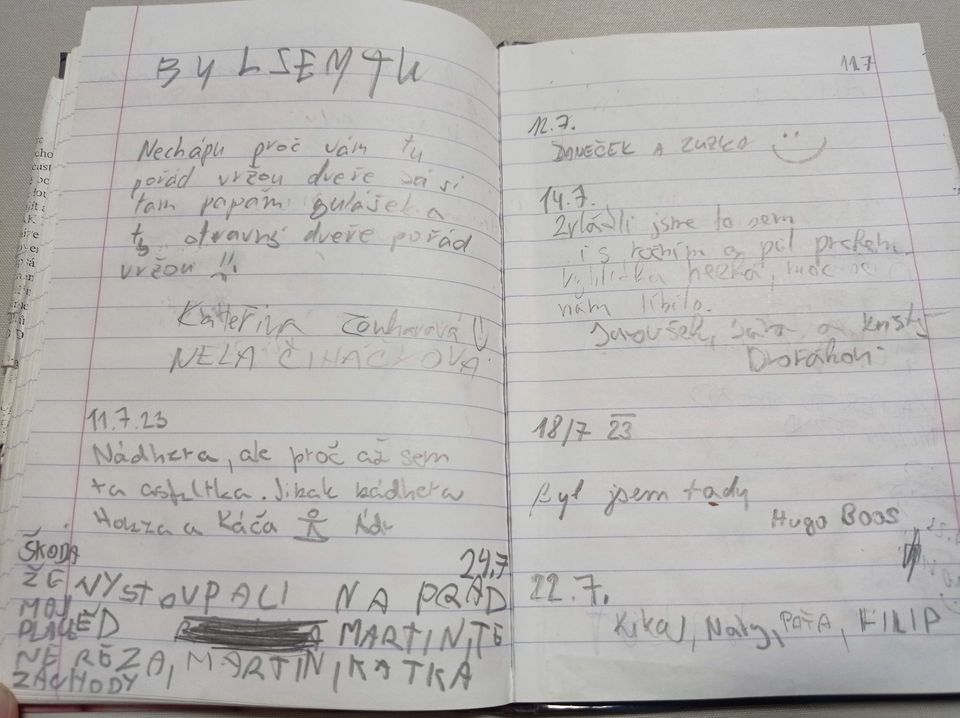 BYL SEM TU
Nechápu proč vám tu
pořád vržou dveře já si
tam papám gulášek a
ty otravný dveře pořád
vržou !!
Kateřina
NELA
11.7.23
Nádhera, ale proč až sem
ta asfaltka. Jinak nádhera
Honza a Káča
24.7
VYSTOUPALI NA PRAD
ĚD MARTIN, TE
REZA, MARTIN, KATKA
ŠKODA
ŽE
MOJ
PLACE
NE
ZÁCHODY
11.7
12.7.
DANEČEK A ZUZKA
14.7.
Zvládli jsme to sem
i s ročním a půl prckem.
vyhlídka hezká, moc se
nám líbilo.
Jaroušek, a Kristý
Dvořákovi
18/7 23
Byl jsem tady
Hugo Boos
22.7.
Kikaj, Naty, PÁŤA, FILIP